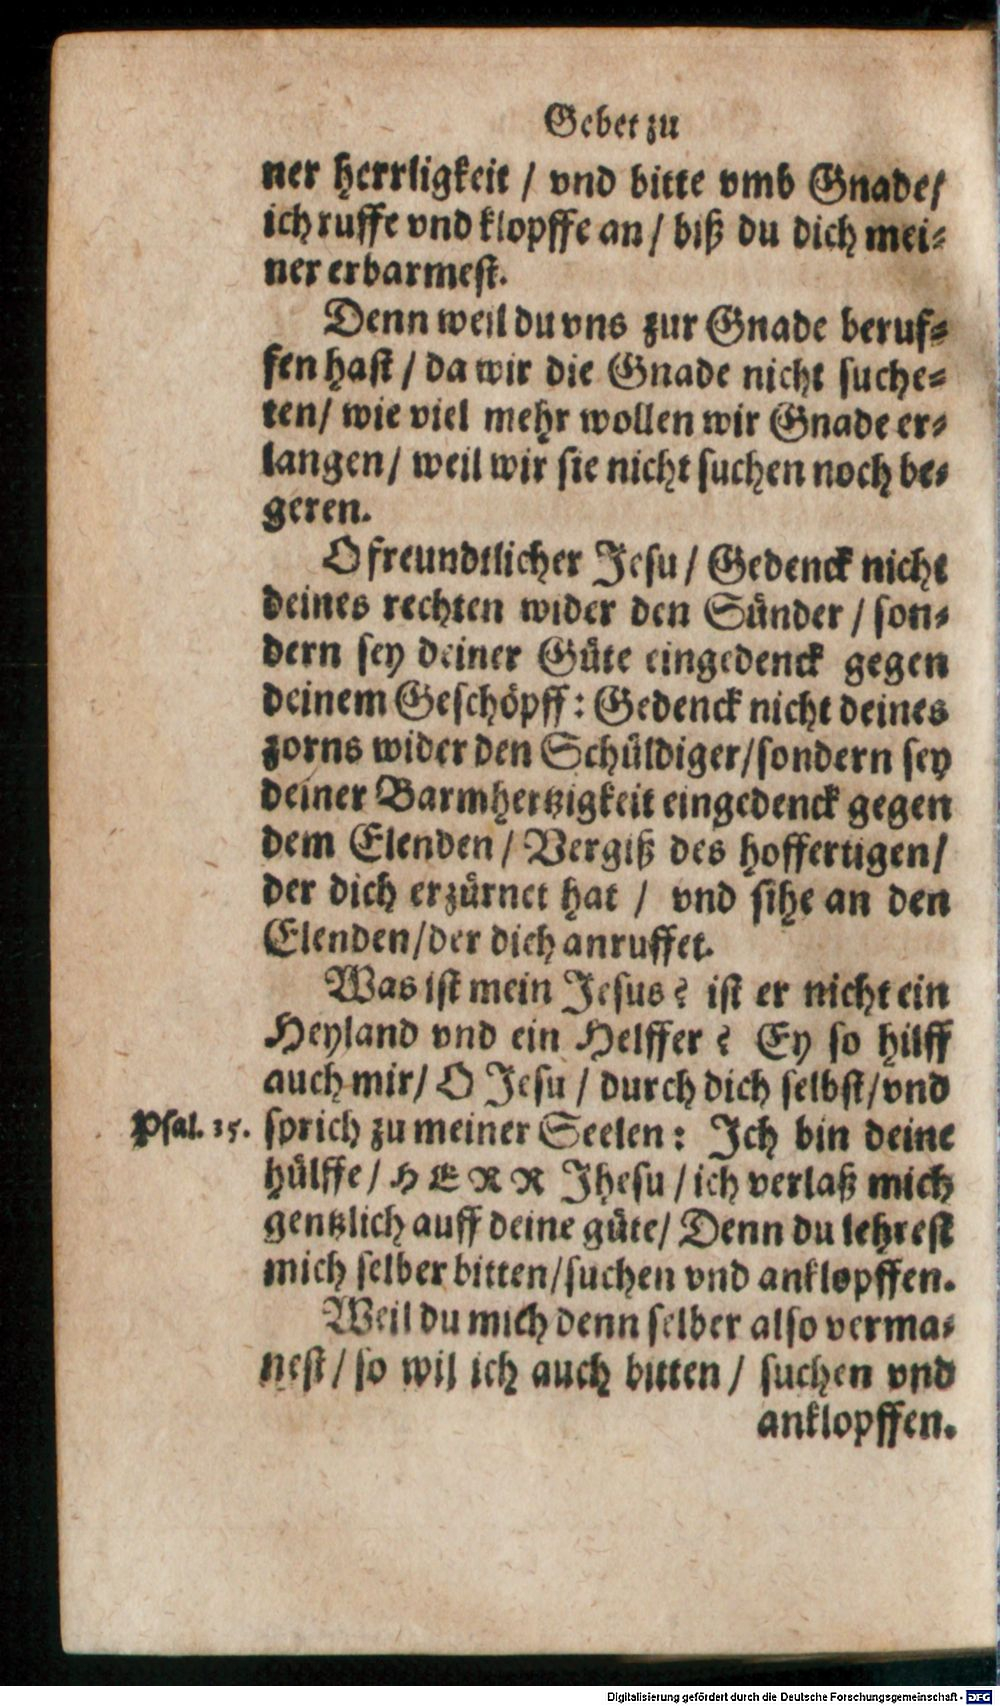 Gebet zu
ner herrligkeit / vnd bitte vmb Gnade /
ich ruffe vnd klopffe an / biß du dich mei-
ner erbarmest.
Denn weil du vns zur Gnade beruf-
fen hast / da wir die Gnade nicht suche-
ten / wie viel mehr wollen wir Gnade er-
langen / weil wir sie nicht suchen noch be-
geren.
O freundtlicher Jesu / Gedenck nicht
deines rechten wider den Sünder / son-
dern sey deiner Güte eingedenck gegen
deinem Geschöpff: Gedenck nicht deines
zorns wider den Schüldiger / sondern sey
deiner Barmhertzigkeit eingedenck gegen
dem Elenden / Vergiß des hoffertigen /
der dich erzürnet hat / vnd sihe an den
Elenden / der dich anruffet.
Was ist mein Jesus? ist er nicht ein
Heyland vnd ein Helffer? Ey so hilff
auch mir / O Jesu / durch dich selbst / vnd
Psal. 35. sprich zu meiner Seelen: Ich bin deine
hülffe / HERR Jhesu / ich verlaß mich
gentzlich auff deine güte / Denn du lehrest
mich selber bitten / suchen vnd anklopffen.
Weil du mich denn selber also verma-
nest / so wil ich auch bitten / suchen vnd
anklopffen.
Digitalisierung gefördert durch die Deutsche Forschungsgemeinschaft - DFG